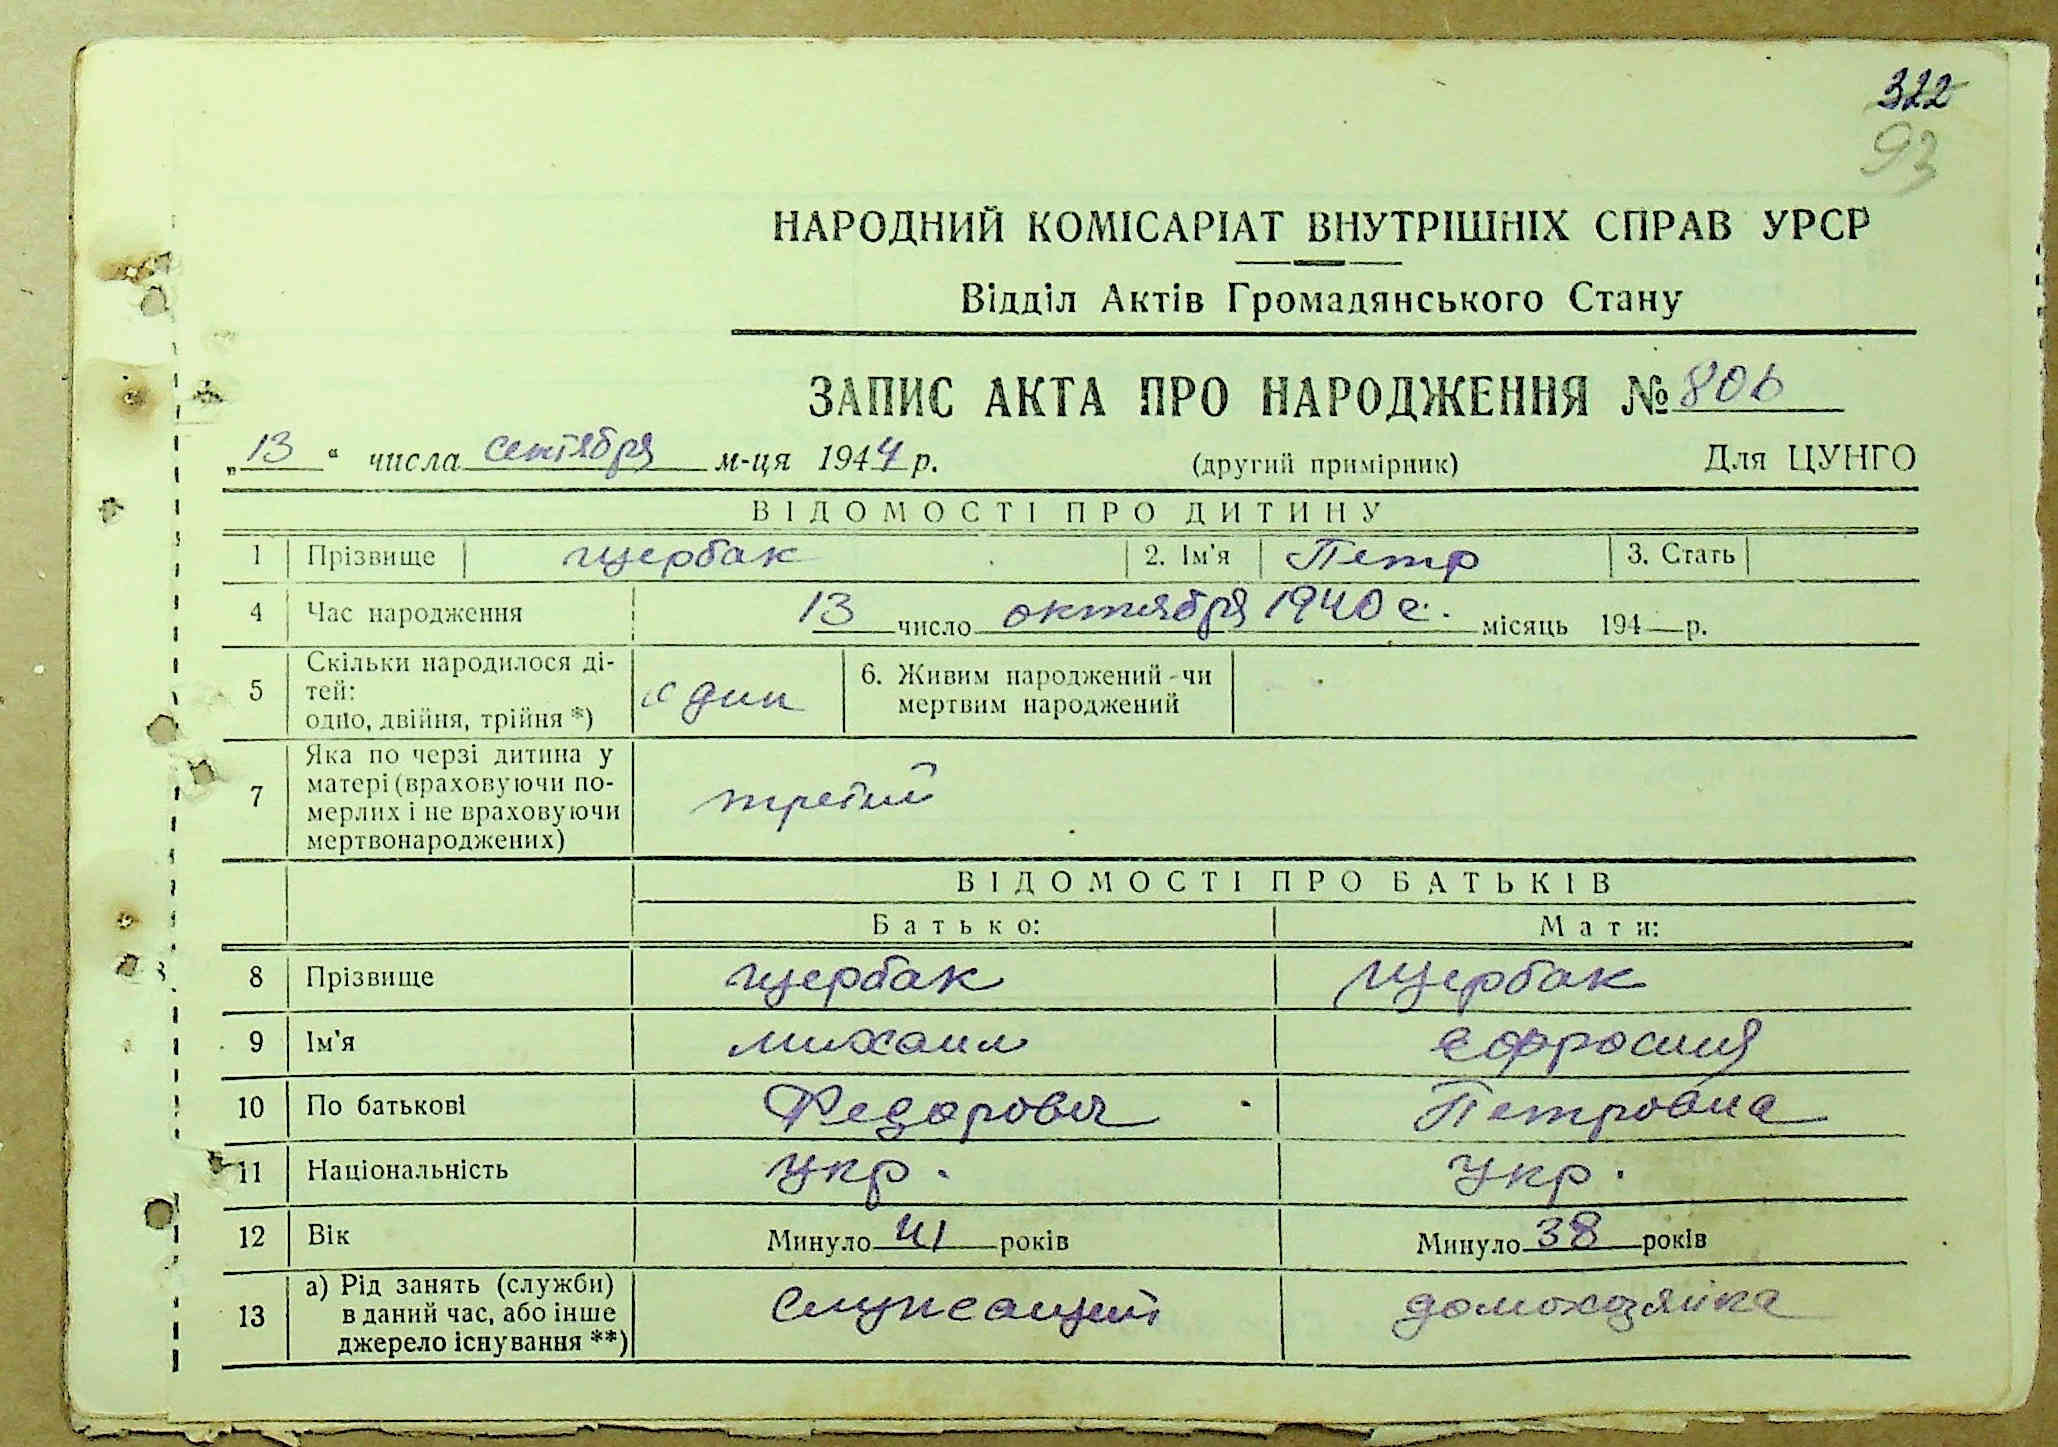 322
93
НАРОДНИЙ КОМІСАРІАТ ВНУТРІШНІХ СПРАВ УРСР
Відділ Актів Громадянського Стану
ЗАПИС АКТА ПРО НАРОДЖЕННЯ № 806
„13“ числа сентября м-ця 1944 р. (другий примірник) Для ЦУНГО
ВІДОМОСТІ ПРО ДИТИНУ
1 Прізвище щербак 2. Ім'я Петр 3. Стать
4 Час народження 13 число октября 1940 г. місяць 194 р.
5 Скільки народилося ді-
тей:
одно, двійня, трійня *) один 6. Живим народжений чи
мертвим народжений
7 Яка по черзі дитина у
матері (враховуючи по-
мерлих і не враховуючи
мертвонароджених) третий
ВІДОМОСТІ ПРО БАТЬКІВ
Батько: Мати:
8 Прізвище щербак щербак
9 Ім'я михаил Єфросиия
10 По батькові Федорович Петровна
11 Національність укр. укр.
12 Вік Минуло 41 років Минуло 38 років
13 а) Рід занять (служби)
в даний час, або інше
джерело існування **) служащий домохозяйка